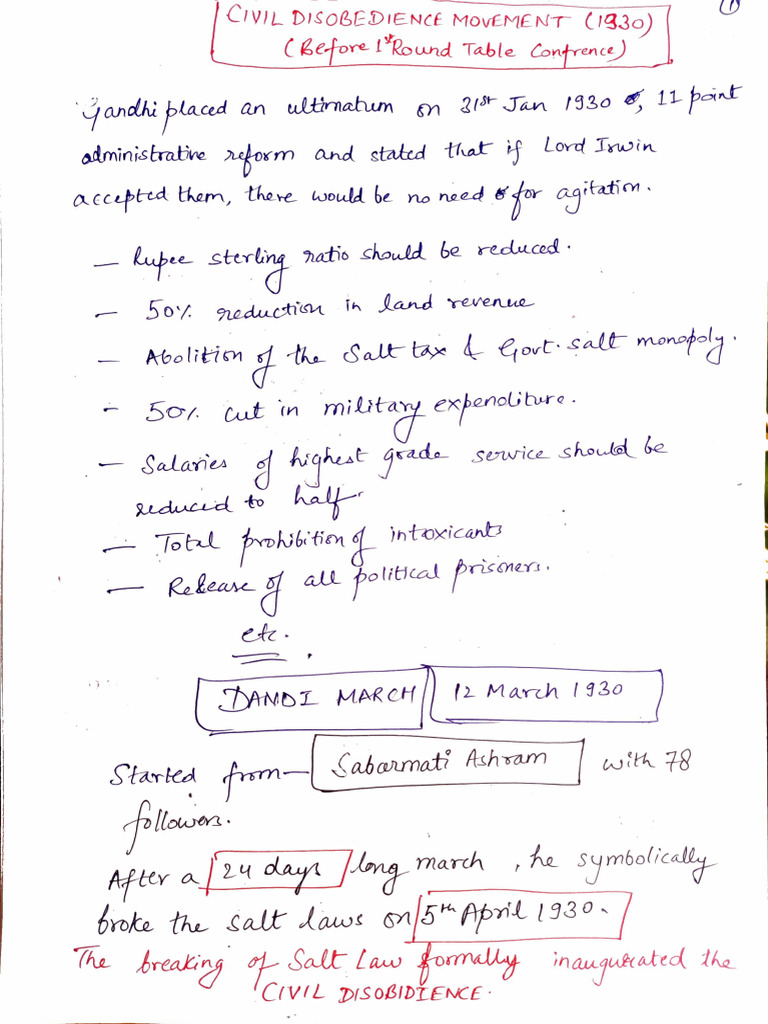 1
CIVIL DISOBEDIENCE MOVEMENT (1930)
(Before 1st Round Table Confrence)
Gandhi placed an ultimatum on 31st Jan 1930, 11 point
administrative reform and stated that if Lord Irwin
accepted them, there would be no need for agitation.
— Rupee sterling ratio should be reduced.
— 50% reduction in land revenue
— Abolition of the Salt tax & Govt. salt monopoly.
- 50% cut in military expenditure.
— Salaries of highest grade service should be
reduced to half.
— Total prohibition of intoxicants
— Release of all political prisoners.
etc.
DANDI MARCH 12 March 1930
Started from — Sabarmati Ashram with 78
followers.
After a 24 days long march, he symbolically
broke the salt laws on 5th April 1930.
The breaking of Salt Law formally inaugurated the
CIVIL DISOBIDIENCE.